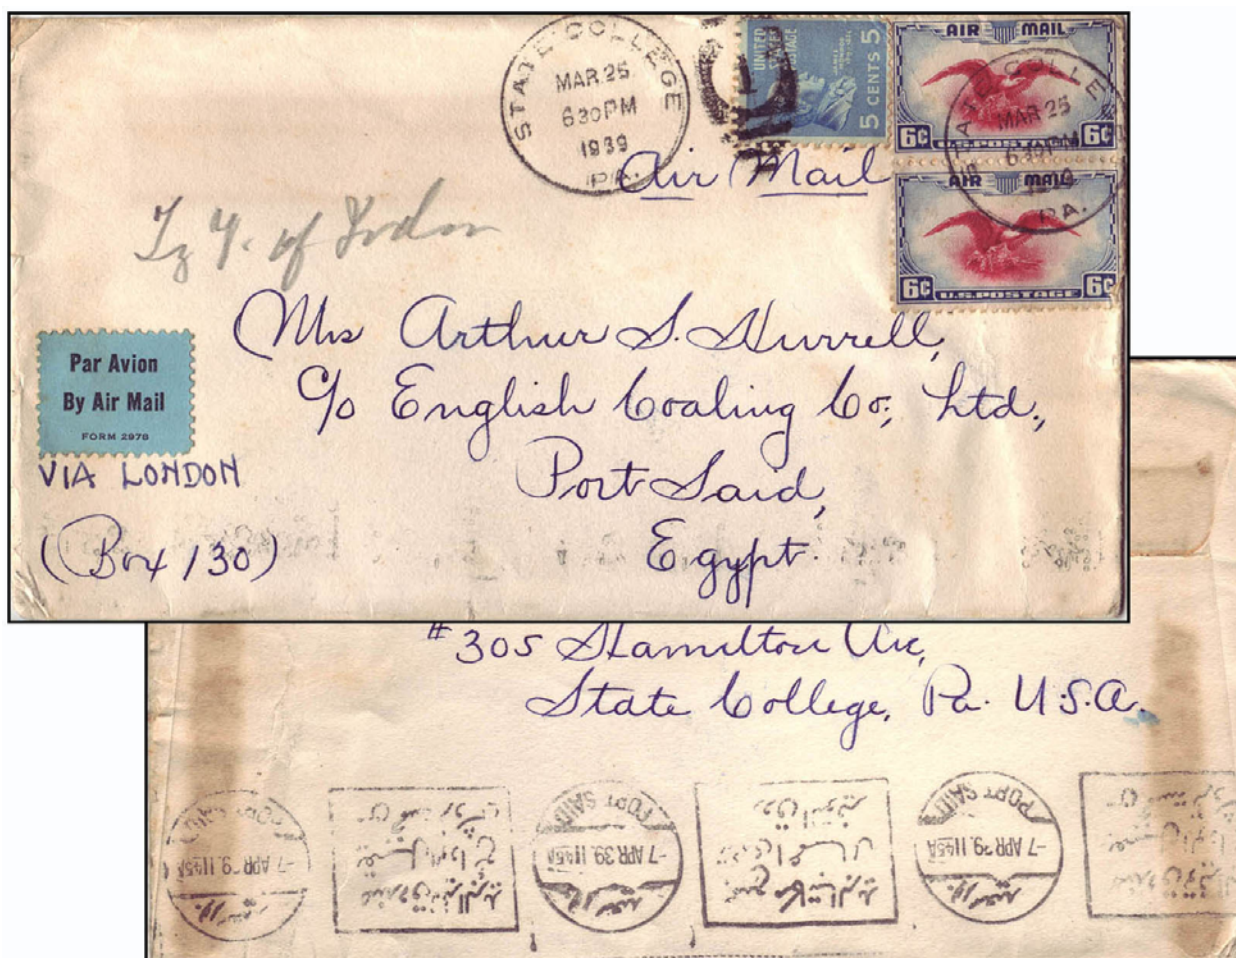 STATE COLLEGE
MAR 25
630PM
1939
PA.
UNITED
STATES
POSTAGE
5 CENTS 5
AIR MAIL
6¢ U.S. POSTAGE 6¢
STATE COLLEGE
MAR 25
630PM
PA.
AIR MAIL
6¢ U.S. POSTAGE 6¢
Air Mail
of
Mrs Arthur S. Hurrell,
c/o English Coaling Co, Ltd.,
Port Said,
Egypt.
Par Avion
By Air Mail
FORM 2978
VIA LONDON
(Box 130)
#305 Hamilton Ave,
State College, Pa. U.S.A.
PORT SAID
-7 APR 39. 1145A
بورسعيد
PORT SAID
-7 APR 39. 1145A
بورسعيد
PORT SAID
-7 APR 39. 1145A
بورسعيد